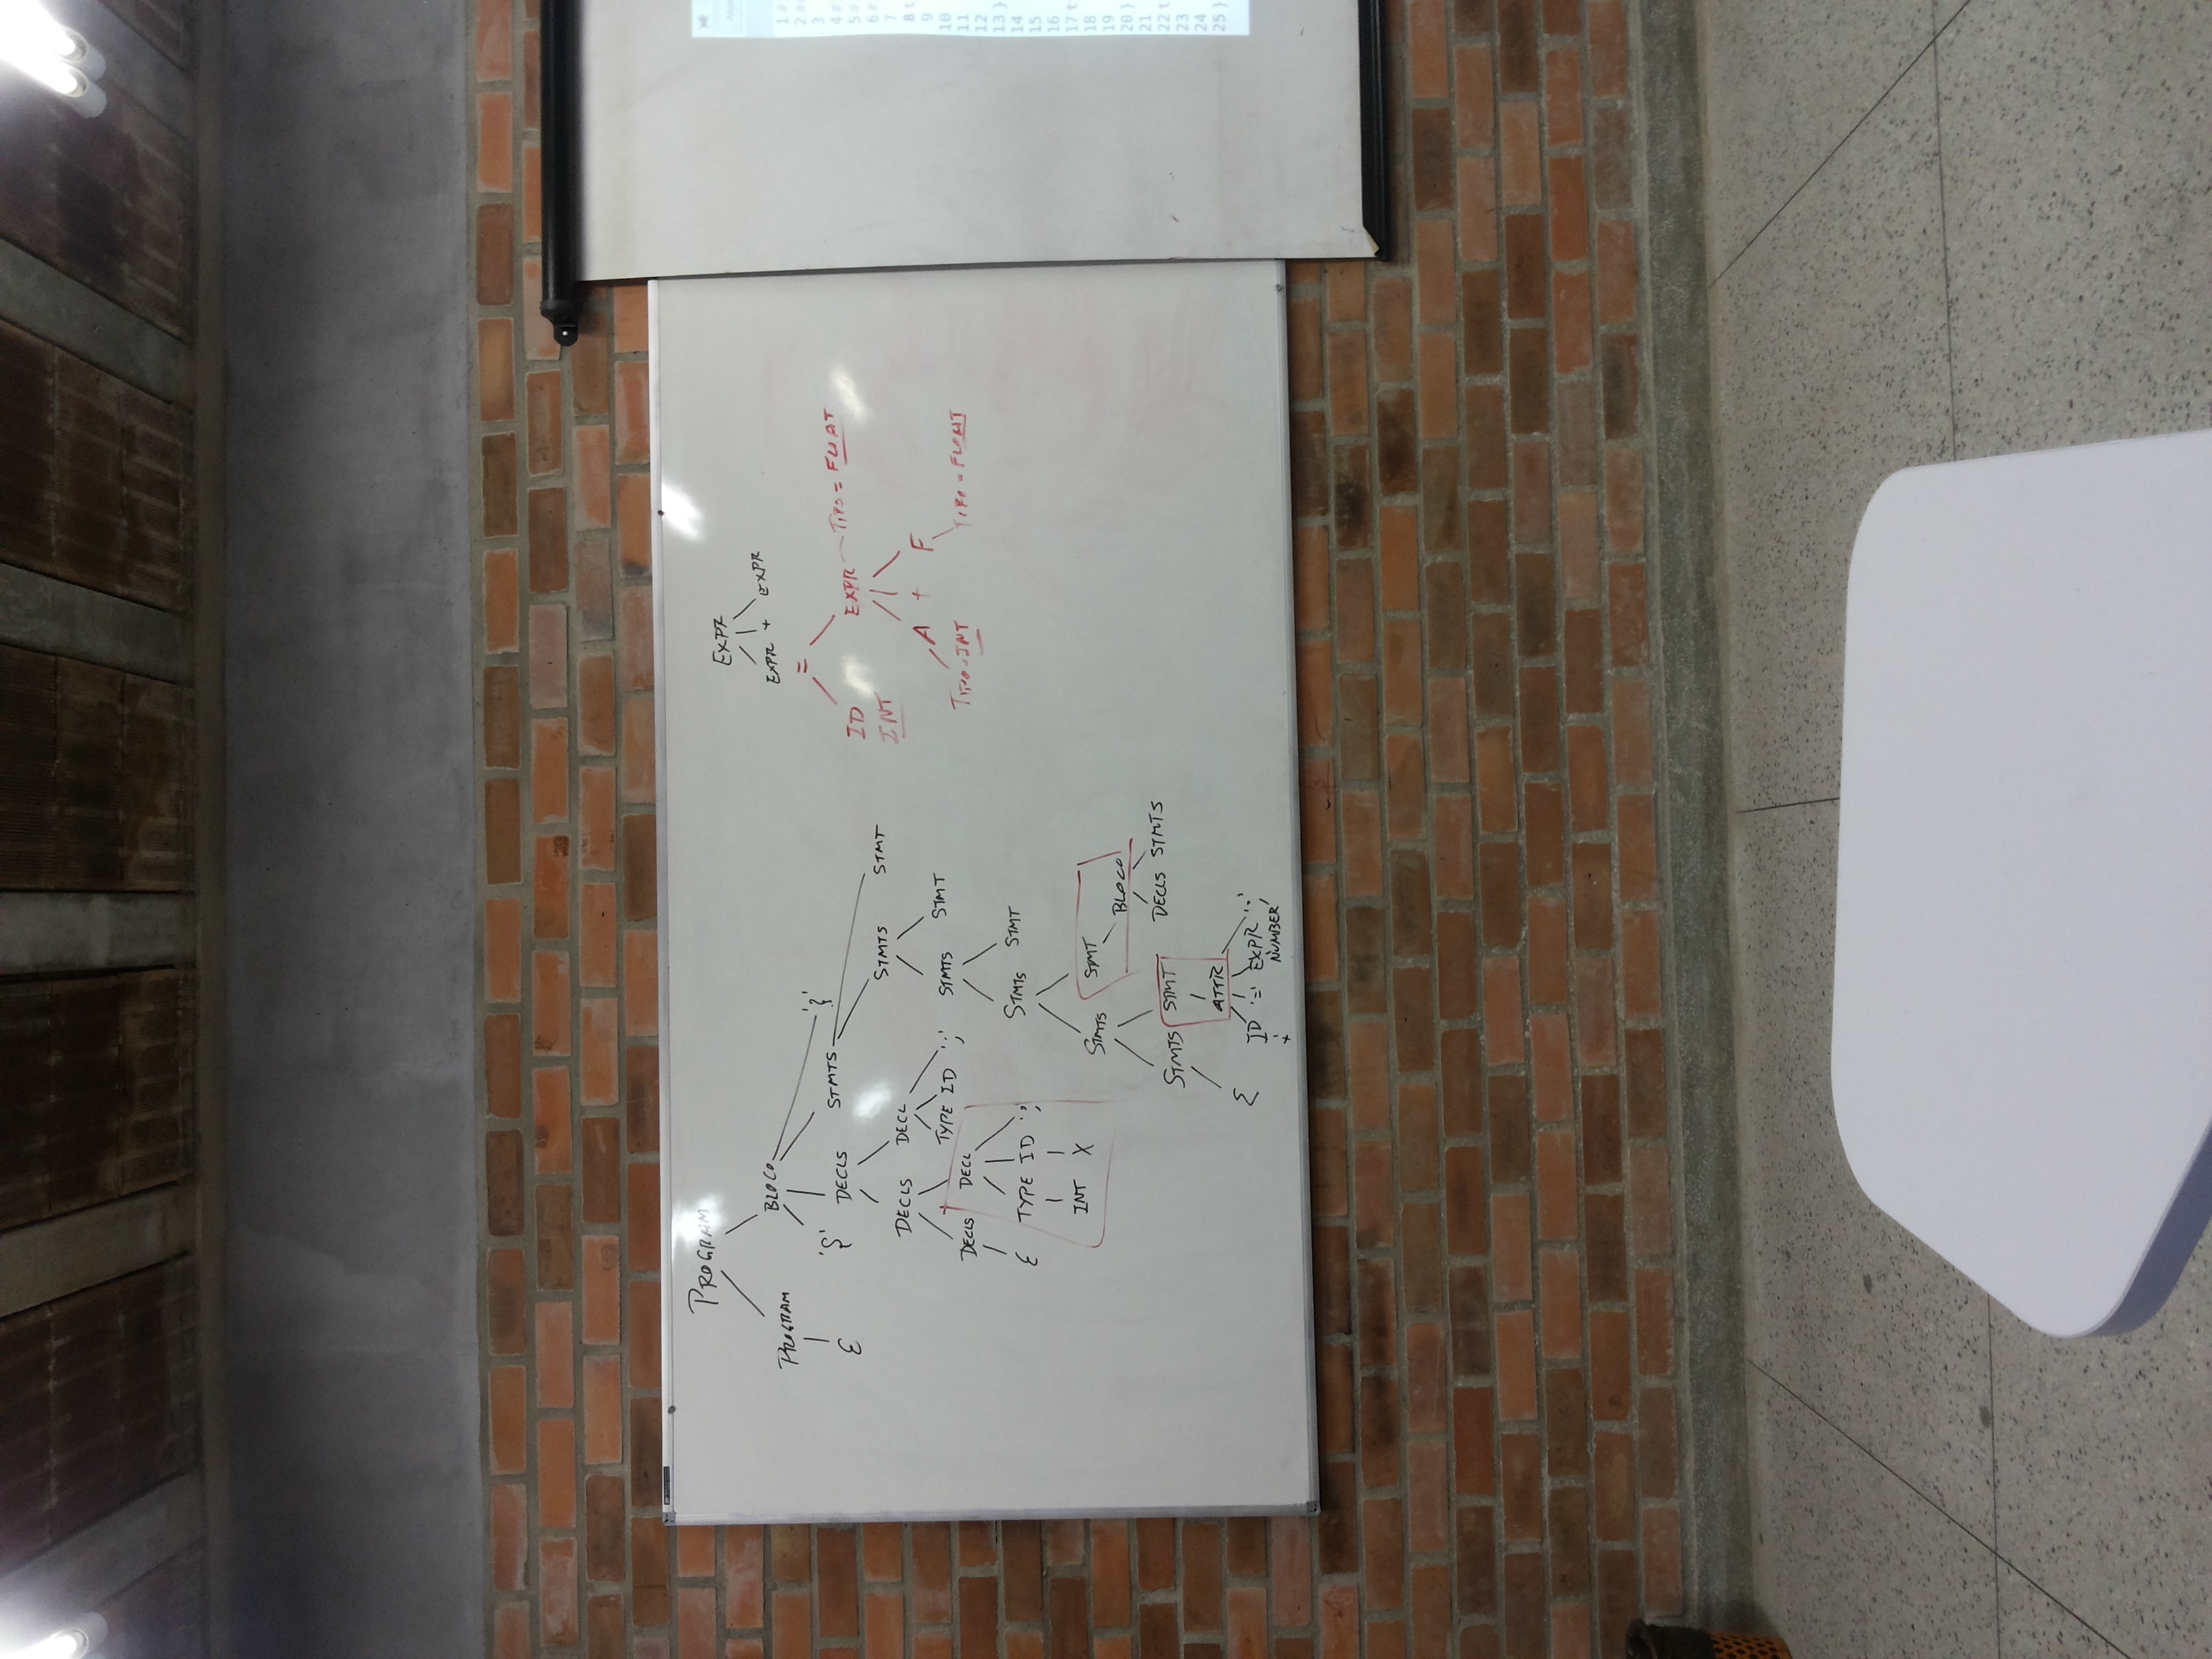 PROGRAM
PROGRAM BLOCO
ε '{' DECLS STMTS '}'
DECLS DECL STMTS STMT
DECLS DECL TYPE ID ';' STMTS STMT
ε TYPE ID ';' STMTS STMT
INT X
STMTS STMT
BLOCO
STMTS STMT DECLS STMTS
ε ATTR
ID '=' EXPR ';'
NUMBER
EXPR
EXPR + EXPR
=
ID EXPR TIPO = FLOAT
INT
A + F
TIPO=INT TIPO = FLOAT
1
2
3
4
5
6
7
8 t
9
10
11
12
13 }
14
15
16
17 t
18
19
20 }
21
22 t
23
24
25 }